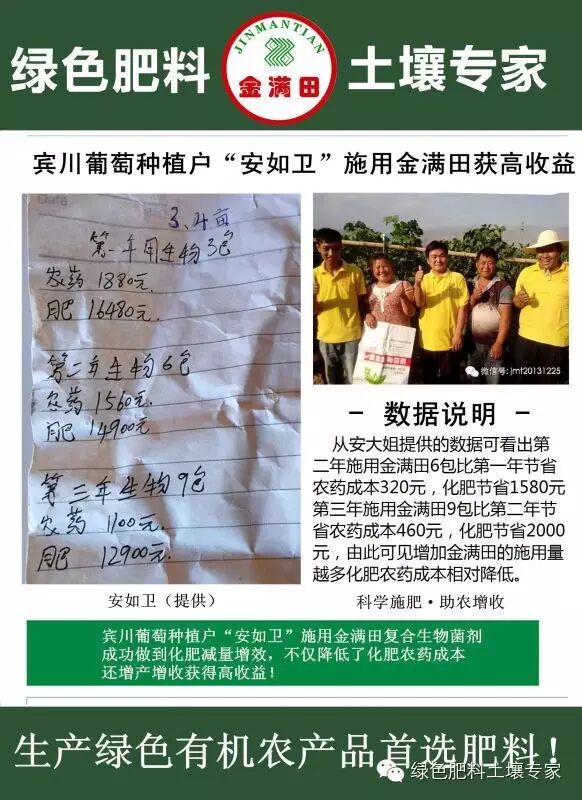 绿色肥料
JINMANTIAN
金满田
土壤专家
宾川葡萄种植户“安如卫”施用金满田获高收益
3.4亩
第一年用生物3包
农药 1880元
肥 16480元.
第二年生物6包
农药 1560元.
肥 14900元.
第三年生物9包
农药 1100元.
肥 12900元.
安如卫（提供）
微信号: jmt20131225
- 数据说明 -
从安大姐提供的数据可看出第
二年施用金满田6包比第一年节省
农药成本320元，化肥节省1580元
第三年施用金满田9包比第二年节
省农药成本460元，化肥节省2000
元，由此可见增加金满田的施用量
越多化肥农药成本相对降低。
科学施肥·助农增收
宾川葡萄种植户“安如卫”施用金满田复合生物菌剂
成功做到化肥减量增效，不仅降低了化肥农药成本
还增产增收获得高收益！
生产绿色有机农产品首选肥料！
绿色肥料土壤专家